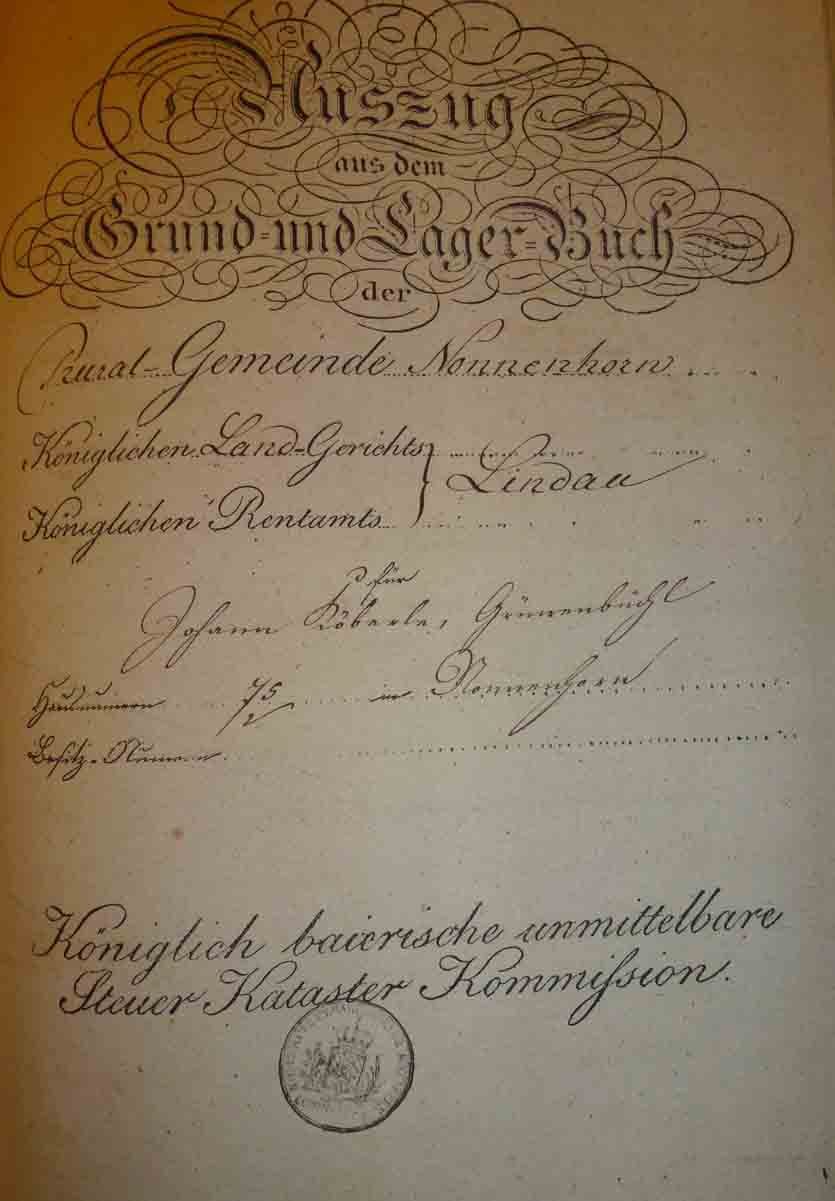 Auszug
aus dem
Grund- und Lager-Buch
der
Rural-Gemeinde Nonnenhorn
Königlichen Land-Gerichts
Lindau
Königlichen Rentamts
für
Johann Köberle,
Hausnumern 75/2 in Nonnenhorn
Besitz-Numern
Königlich baierische unmittelbare
Steuer Kataster Kommission.